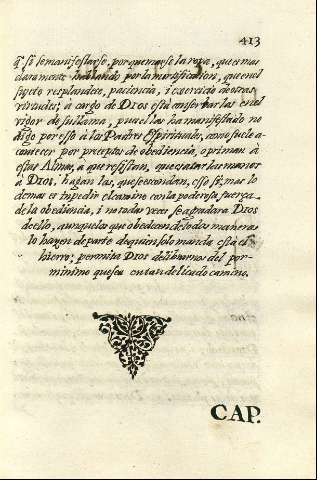 413
q̃ sò lemanifestarse, porquemarse la ropa, que es mas
claramente hablando por la mortificacion, que en el
sujeto resplandece, paciencia, i exercicio de otras
virtudes; à cargo de DIOS està conservarlas en el
vigor de su llama, pues el las ha manifestado no
digo por esso à los Padres Espirituales, como suele a-
contecer por preceptos de obediencia, opriman à
estas Almas, à que resistan, que atar las manos
à DIOS, hagan las, que se escondan, esso sì; mas lo
demas es impedir el camino con la poderosa fuerça
de la obediencia, i no todas veces se agradarà DIOS
de ello, aunque los que obedecen de todas maneras
lo hayen de parte de quien solo manda està el
hierro; permita DIOS de librarnos del por-
minimo que sea en tan delicado camino.
CAP.